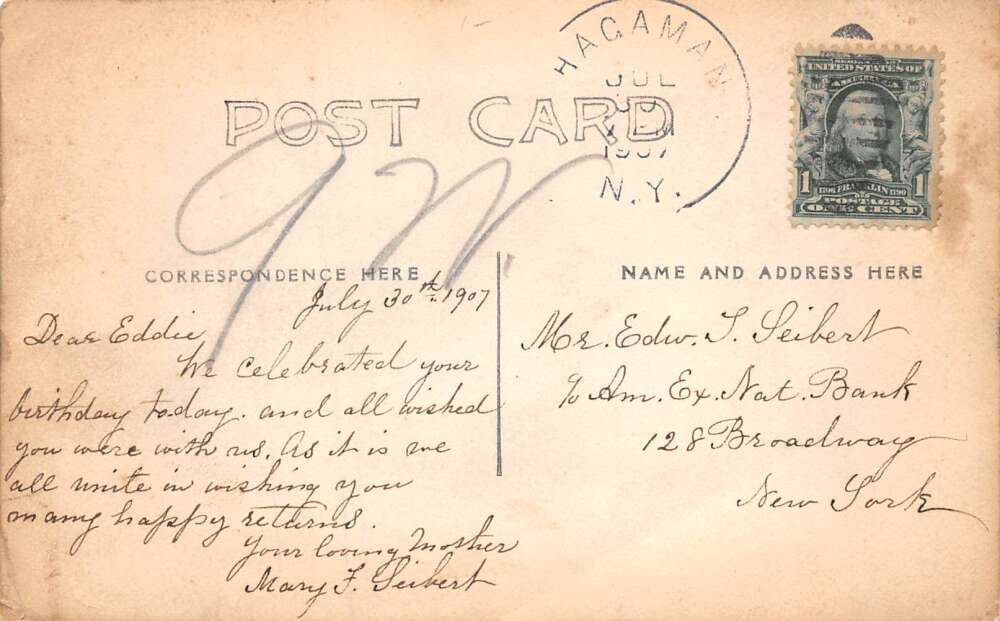 HAGAMAN
JUL
30
M
1907
N.Y.
POST CARD
SERIES 1902
UNITED STATES OF
AMERICA
1 1
1706 FRANKLIN 1790
POSTAGE
ONE CENT
CORRESPONDENCE HERE
July 30th. 1907
Dear Eddie
We celebrated your
birthday to-day. and all wished
you were with us. As it is we
all unite in wishing you
many happy returns.
Your loving Mother
Mary F. Seibert
NAME AND ADDRESS HERE
Mr. Edw. T. Seibert
c/o Am. Ex. Nat. Bank
128 Broadway
New York